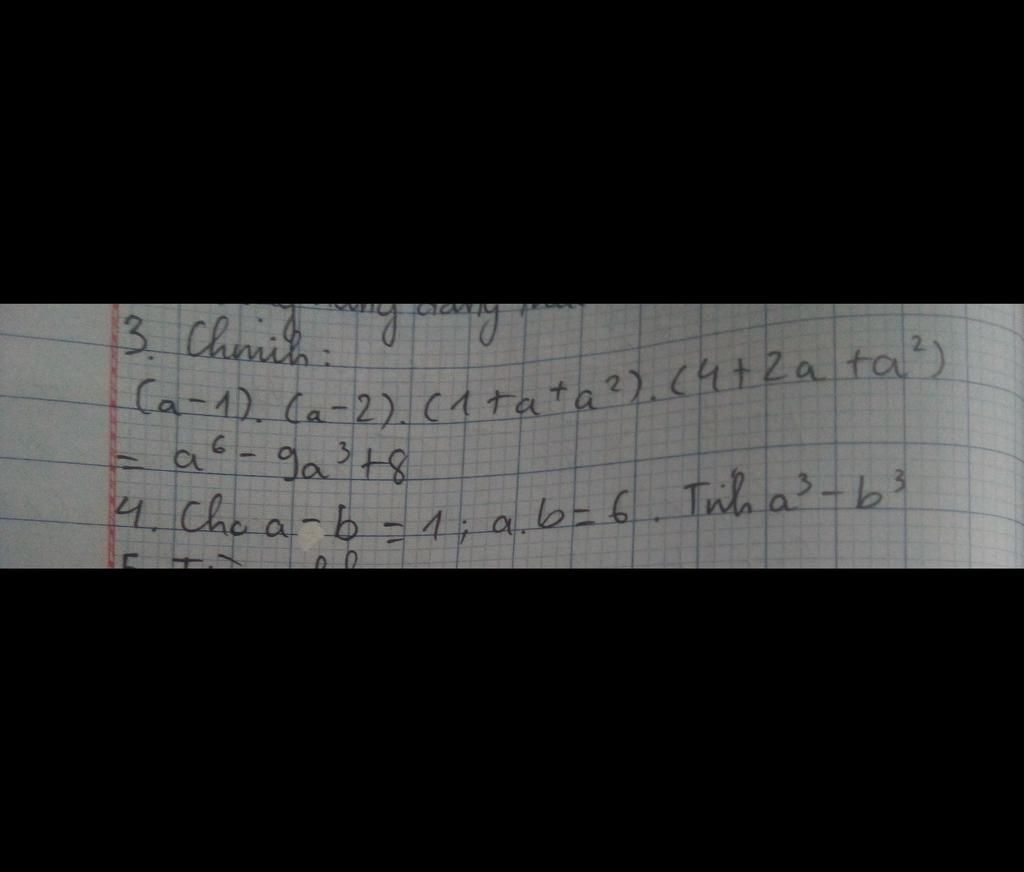 3. Chmih:
(a-1).(a-2).(1+a+a²).(4+2a+a²)
= a⁶ - 9a³+8
4. Cho a - b = 1; a.b = 6. Tính a³ - b³